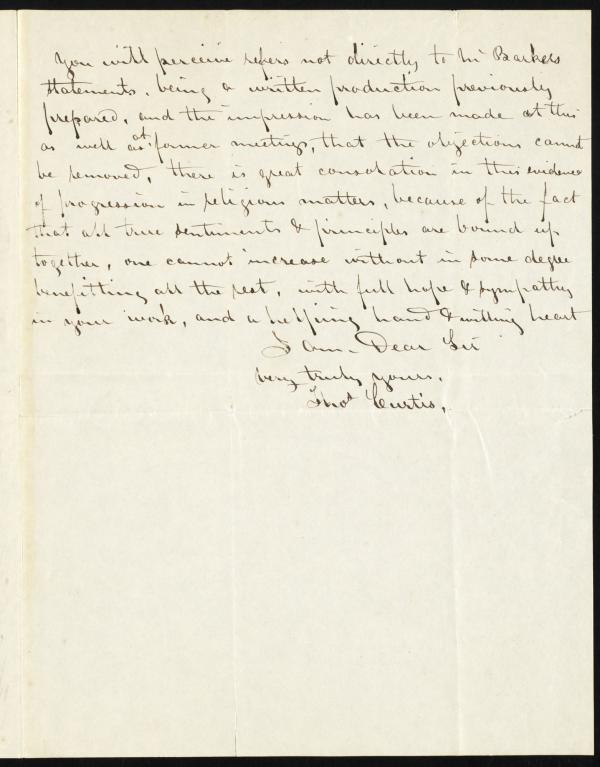 You will perceive refers not directly to Mr Barkers
statements, being a written production previously
prepared, and the impression has been made at this
as well as at former meetings, that the objections cannot
be removed, there is great consolation in this evidence
of progression in religious matters, because of the fact
that all true sentiments & principles are bound up
together, one cannot increase without in some degree
benefitting all the rest, with full hope & sympathy
in your work, and a helping hand & willing heart
I am - Dear Sir
very truly yours,
Thos Curtis,